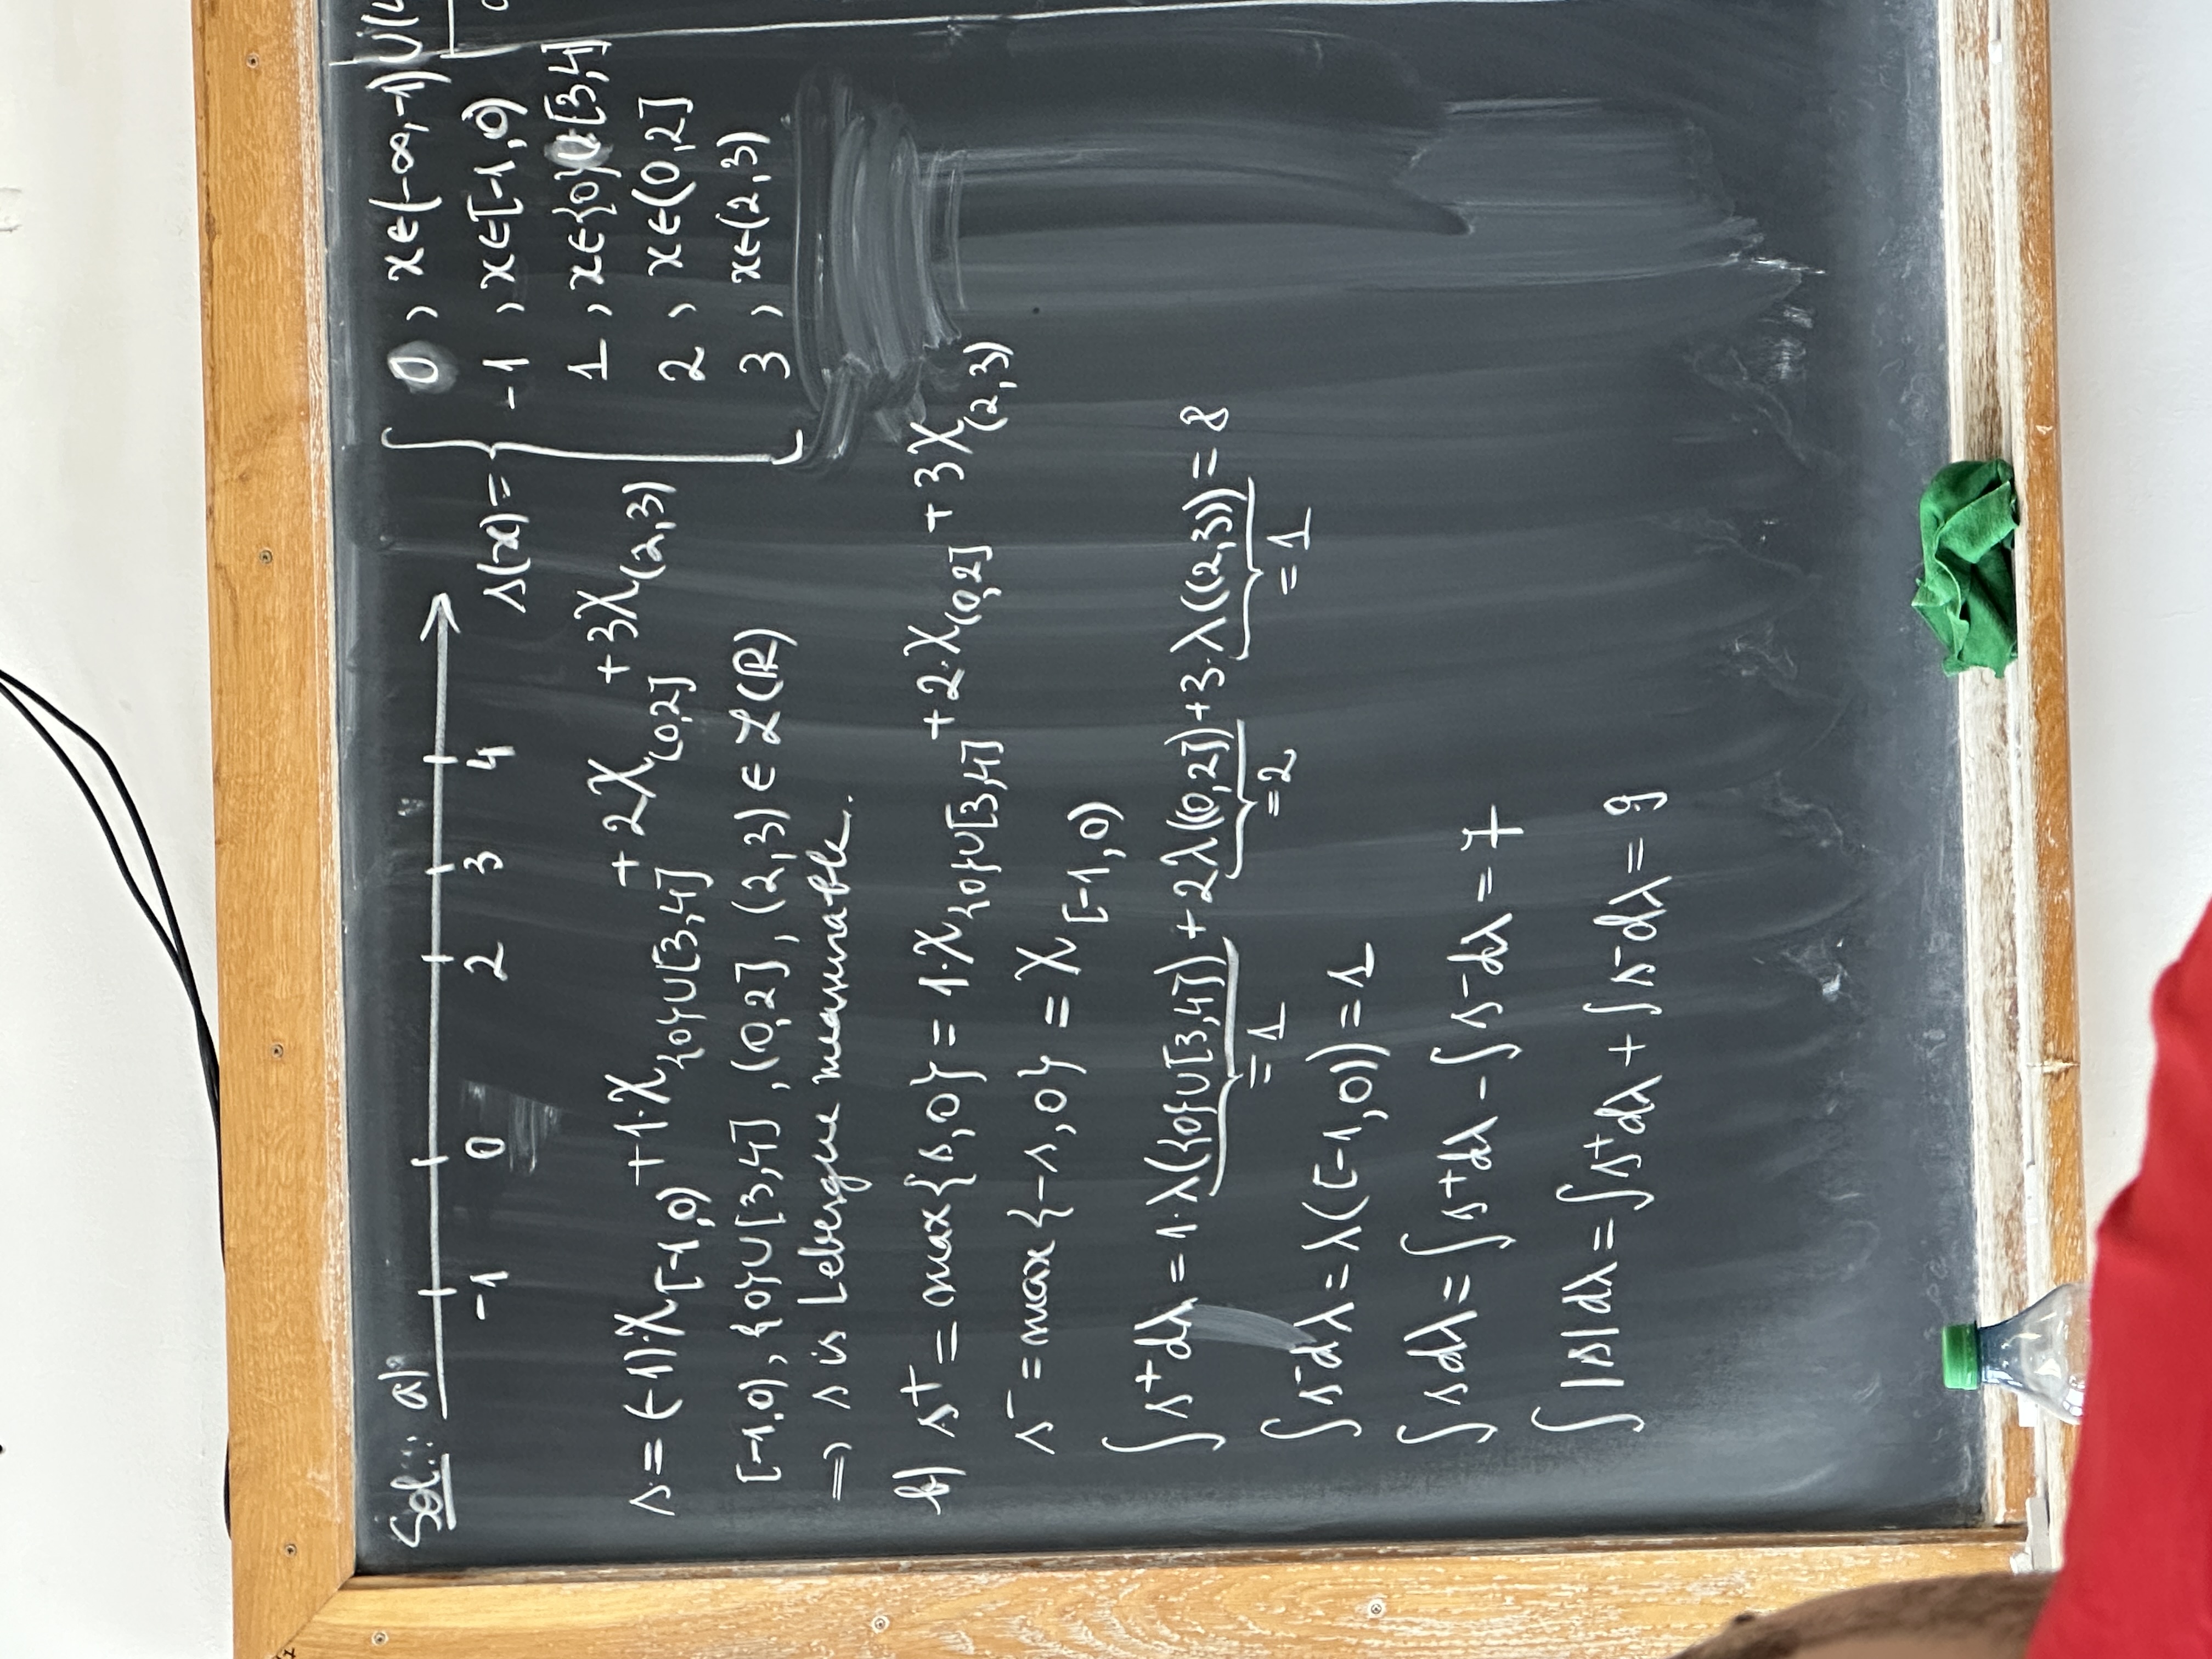 Sol.: a)
-1 0 2 3 4
s(x) = { 0 , x∈(-∞,-1)∪(4
-1 , x∈[-1,0)
1 , x∈{0}∪[3,4]
2 , x∈(0,2]
3 , x∈(2,3)
s = (-1)·χ_[-1,0) + 1·χ_{0}∪[3,4] + 2χ_(0,2] + 3χ_(2,3)
[-1,0), {0}∪[3,4], (0,2], (2,3) ∈ ℒ(ℝ)
=> s is Lebesgue measurable.
b) s⁺ = max{s,0} = 1·χ_{0}∪[3,4] + 2·χ_(0,2] + 3χ_(2,3)
s⁻ = max{-s,0} = χ_[-1,0)
∫s⁺dλ = 1·λ({0}∪[3,4]) + 2λ((0,2]) + 3·λ((2,3)) = 8
=1 =2 =1
∫s⁻dλ = λ([-1,0)) = 1
∫sdλ = ∫s⁺dλ - ∫s⁻dλ = 7
∫|s|dλ = ∫s⁺dλ + ∫s⁻dλ = 9